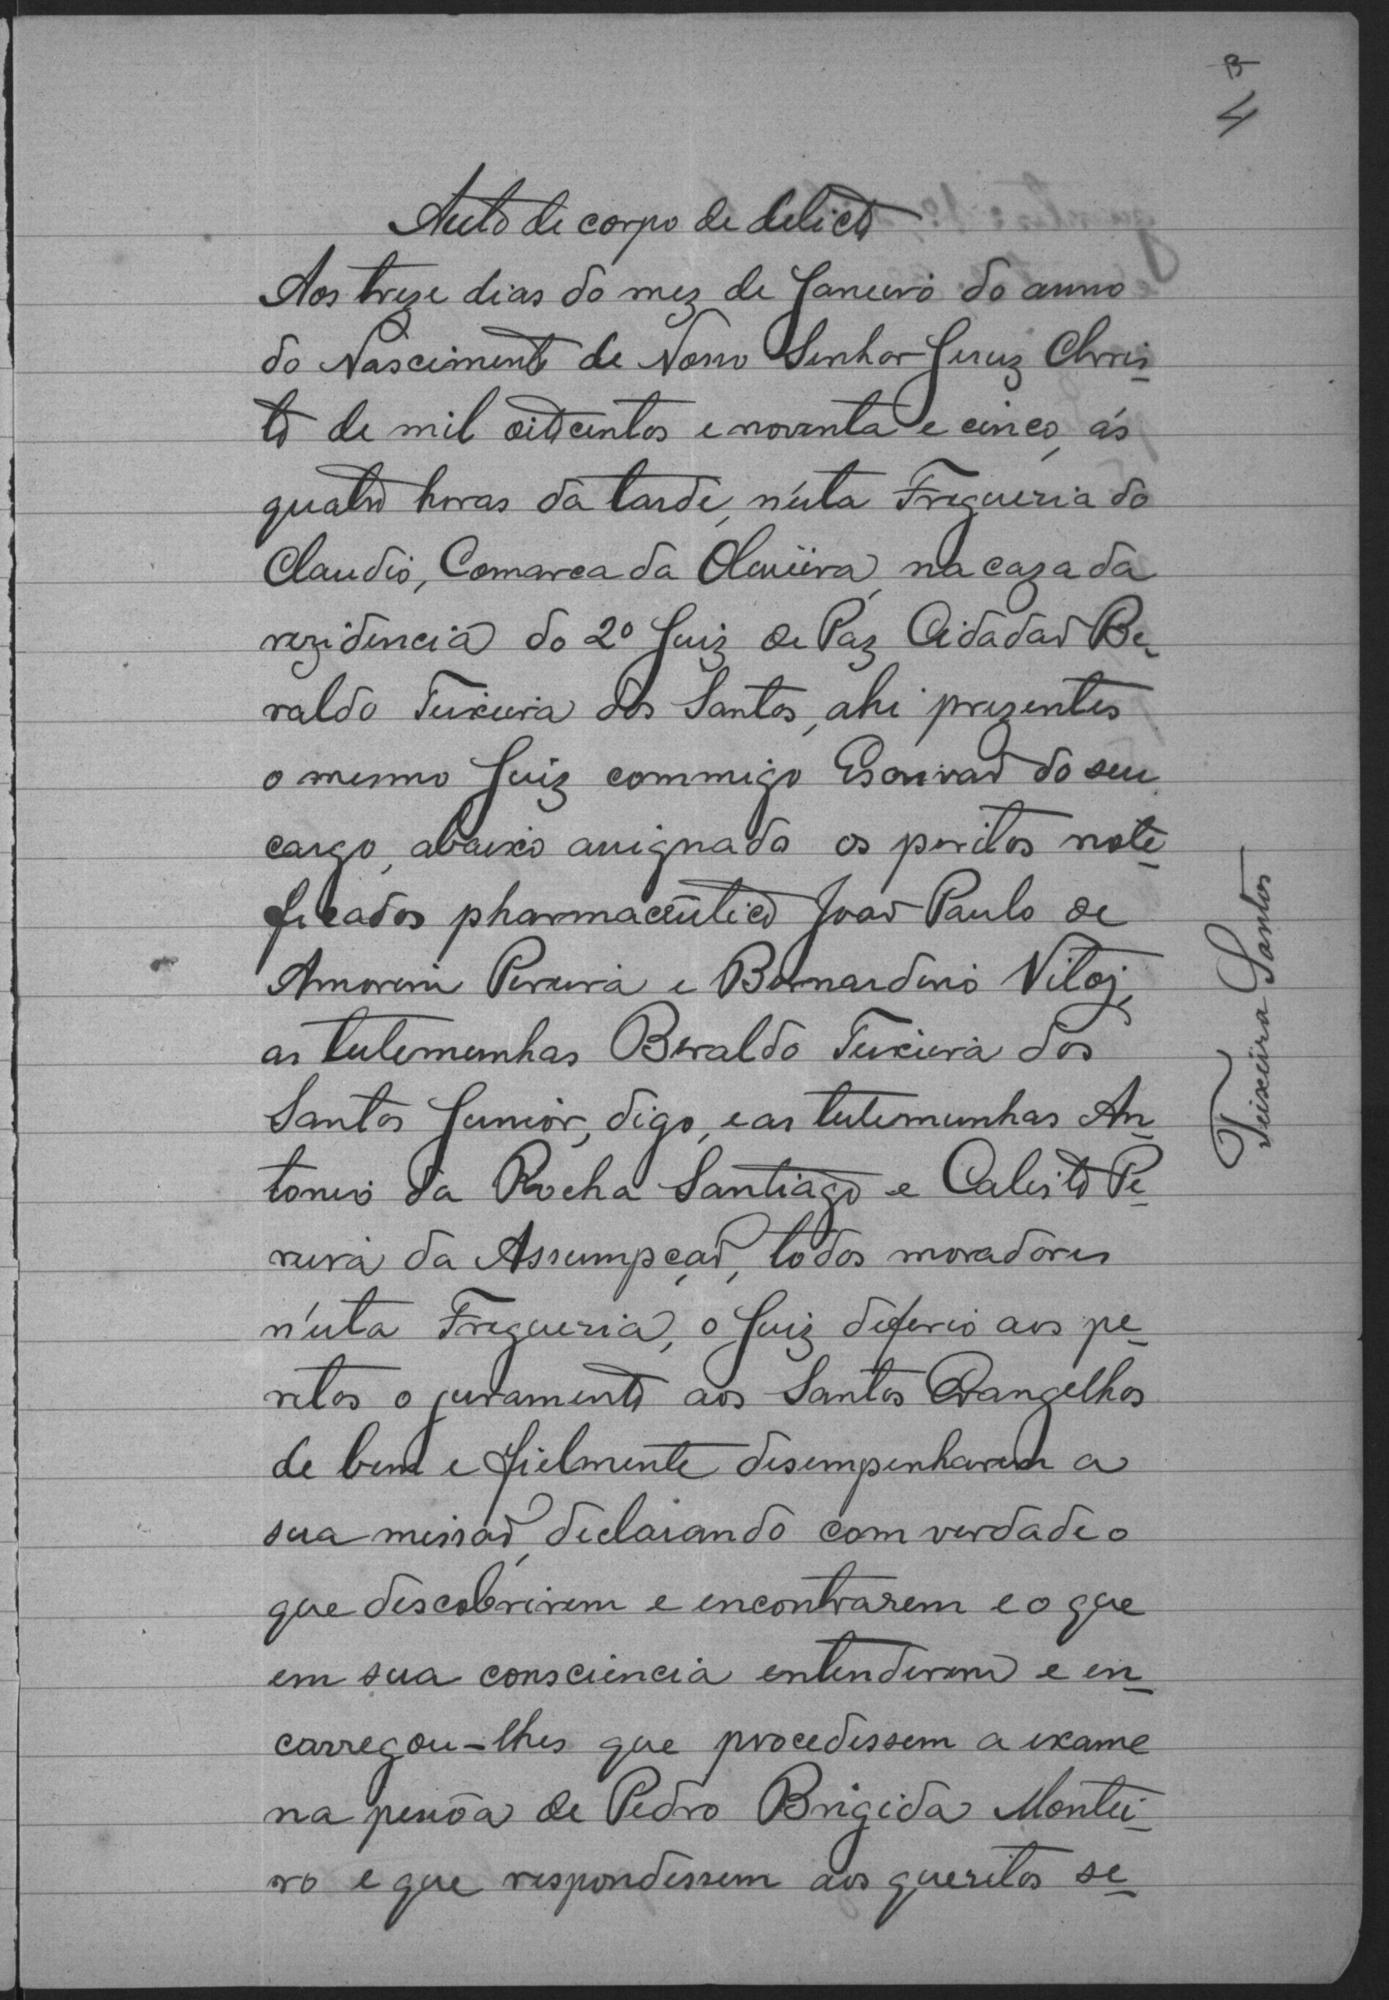 4
Auto de corpo de delicto
Aos treze dias do mez de Janeiro do anno
do Nascimento de Nosso Senhor Jesuz Chris-
to de mil oitocentos e noventa e cinco, ás
quatro horas da tarde, n'esta Freguezia do
Claudio, Comarca da Oliveira, na caza da
rezidencia do 2º Juiz de Paz Cidadaõ Be-
raldo Teixeira dos Santos, ahi prezentes
o mesmo Juiz commigo Escrivaõ do seu
cargo, abaixo assignado os peritos note-
ficados pharmaceutico Joaõ Paulo de
Amorim Pereira e Bernardino Vitoj,
as testemunhas Beraldo Teixeira dos
Santos Junior, digo, e as testemunhas An-
tonio da Rocha Santiago e Calisto Pe-
reira da Assumpçaõ, todos moradores
n'esta Freguezia, o Juiz deferio aos pe-
ritos o juramento aos Santos Evangelhos
de bem e fielmente desempenharem a
sua missaõ, declarando com verdade o
que descobrirem e encontrarem e o que
em sua consciencia entenderem e en-
carregou-lhes que procedessem a exame
na pessôa de Pedro Brigida Montei-
ro e que respondessem aos quezitos se-
Teixeira Santos